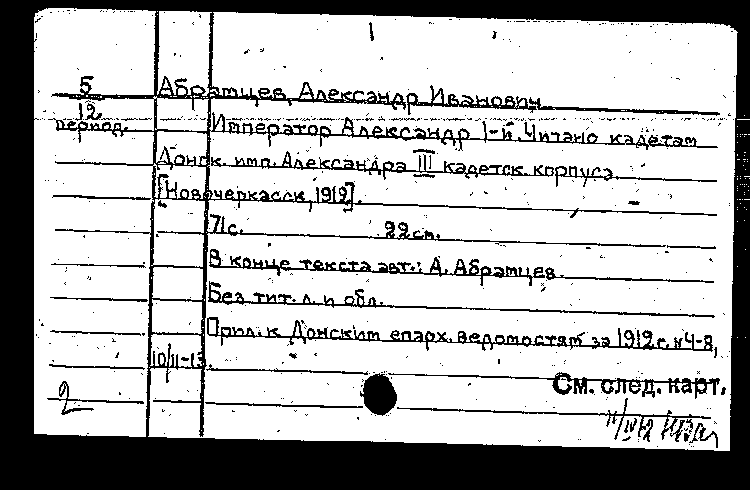 5
12
период.
Абратцев, Александр Иванович
Император Александр I-й. Читано кадетам
Донск. имп. Александра III кадетск. корпуса.
[Новочеркасск, 1912].
71с. 22см.
В конце текста авт.: А. Абратцев.
Без тит. л. и обл.
Прил. к Донским епарх. ведомостям за 1912г. №4-8,
10/11-13.
См. след. карт.
2